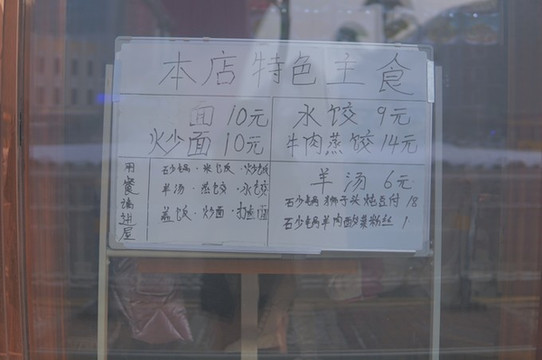 本店特色主食
面 10元
水饺 9元
炒面 10元
牛肉蒸饺 14元
用餐请进屋
砂锅·米饭·炒饭
羊汤·蒸饺·水饺
盖饭·炒面·打卤面
羊汤 6元
砂锅狮子头炖豆付 18
砂锅羊肉酸菜粉丝 1